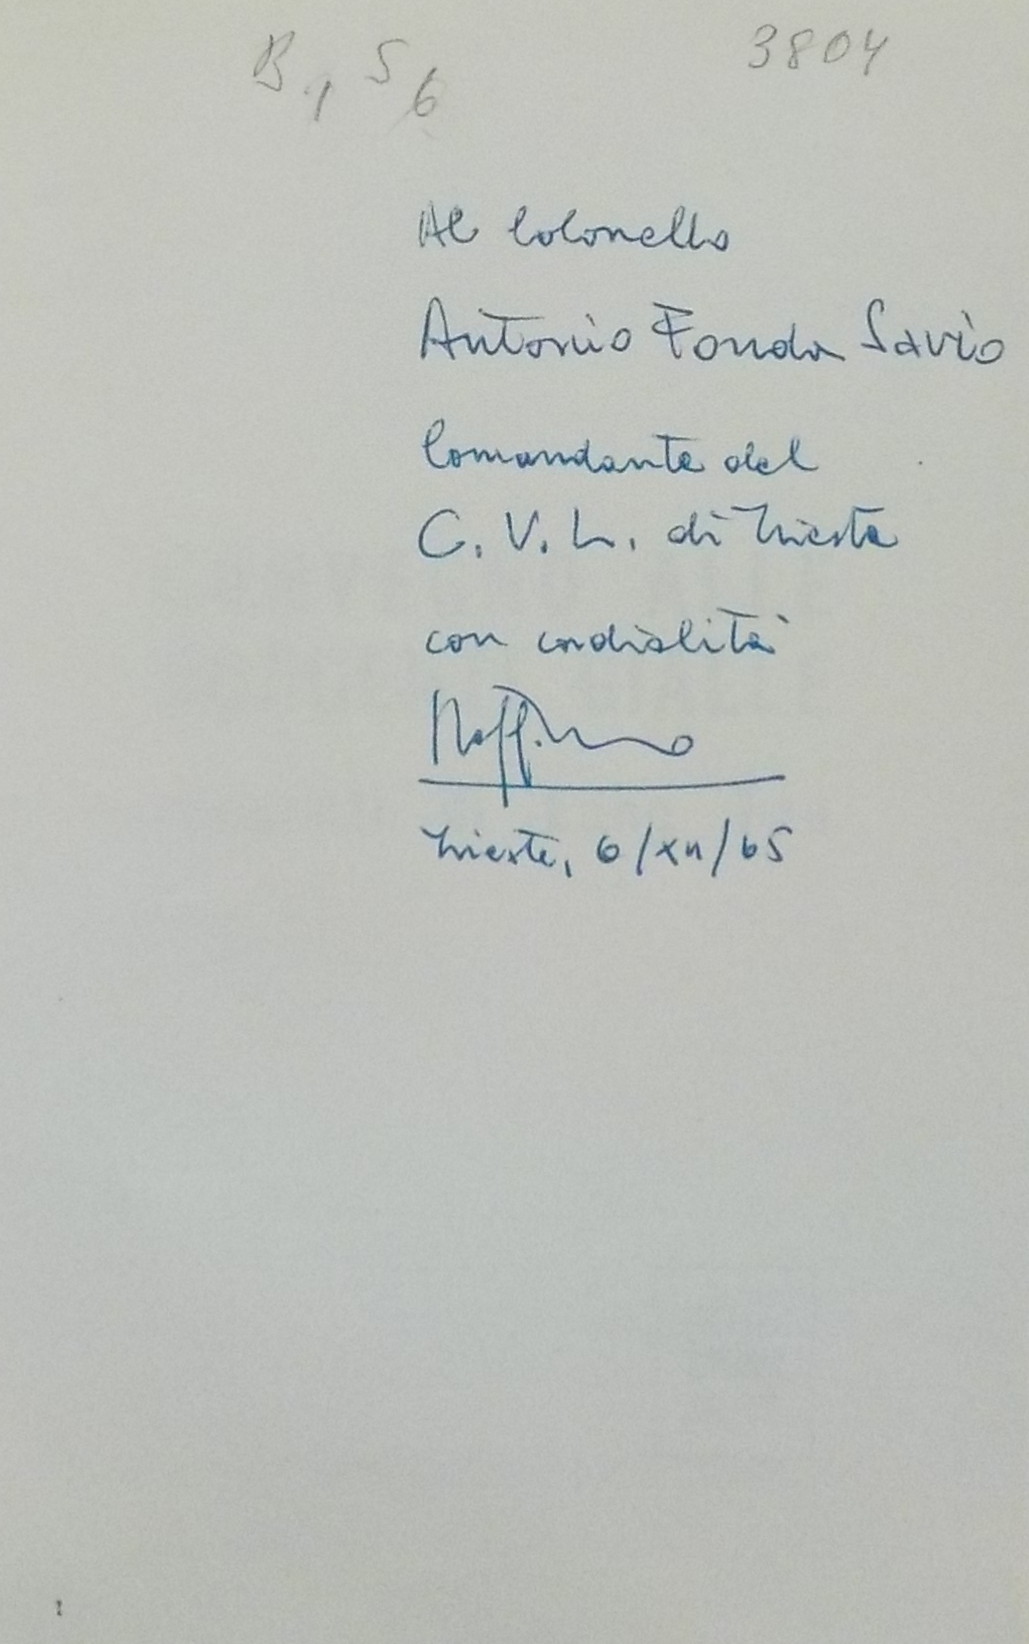 B1 S6
3804
Al Colonnello
Antonio Fonda Savio
Comandante del
C. V. L. di Trieste
con cordialità
Trieste, 6/XII/65
1